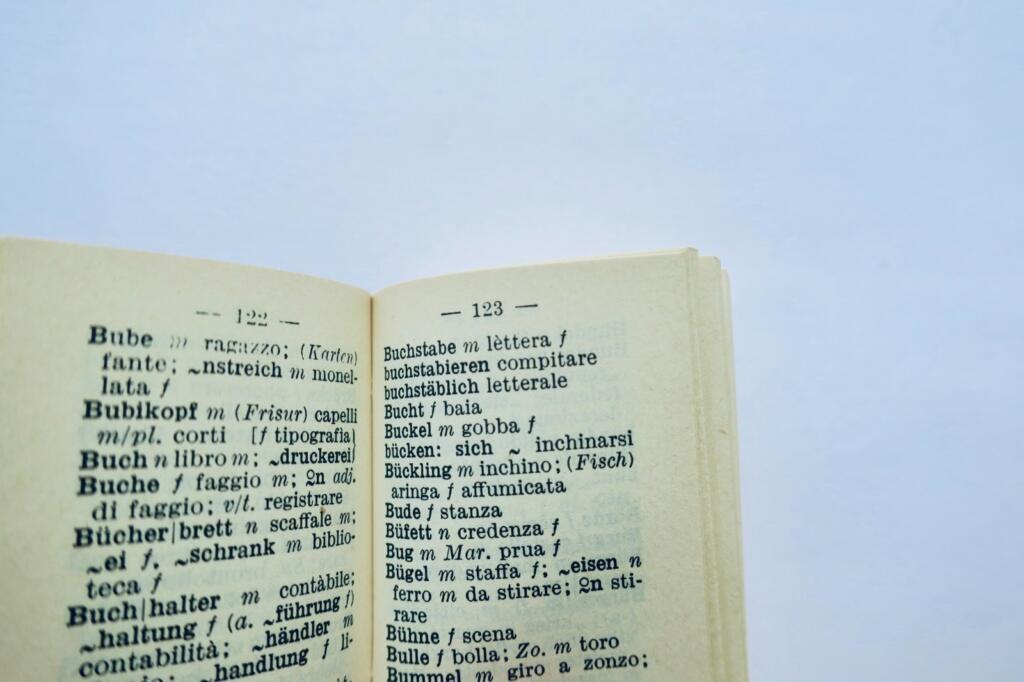 — 122 —
Bube m ragazzo; (Karten)
fante; ~nstreich m monel-
lata f
Bubikopf m (Frisur) capelli
m/pl. corti [f tipografia]
Buch n libro m; ~druckerei
Buche f faggio m; 2n adj.
di faggio; v/t. registrare
Bücher|brett n scaffale m;
~ei f, ~schrank m biblio-
teca f
Buch|halter m contàbile;
~haltung f (a. ~führung f)
contabilità; ~händler m
~handlung f li-
— 123 —
Buchstabe m lèttera f
buchstabieren compitare
buchstäblich letterale
Bucht f baia
Buckel m gobba f
bücken: sich ~ inchinarsi
Bückling m inchino; (Fisch)
aringa f affumicata
Bude f stanza
Büfett n credenza f
Bug m Mar. prua f
Bügel m staffa f; ~eisen n
ferro m da stirare; 2n sti-
rare
Bühne f scena
Bulle f bolla; Zo. m toro
Bummel m giro a zonzo;